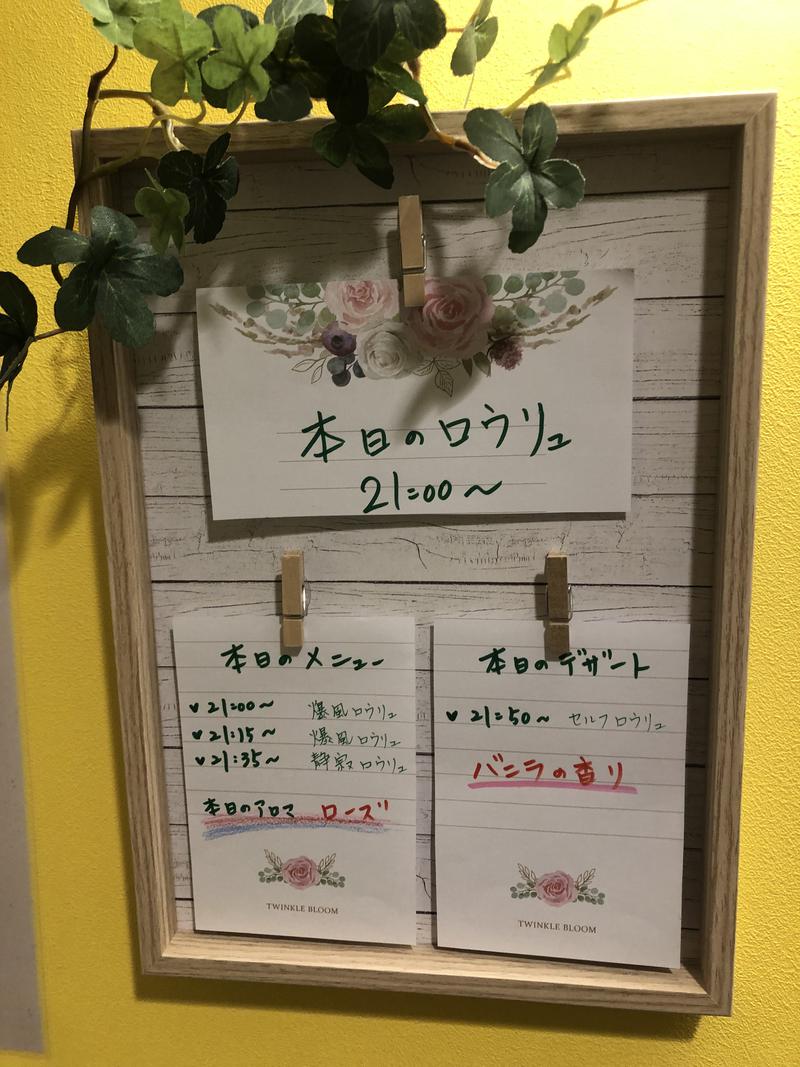 本日のロウリュ
21:00〜
本日のメニュー
♥21:00〜 爆風ロウリュ
♥21:15〜 爆風ロウリュ
♥21:35〜 静寂ロウリュ
本日のアロマ ローズ
TWINKLE BLOOM
本日のデザート
♥21:50〜 セルフロウリュ
バニラの香り
TWINKLE BLOOM